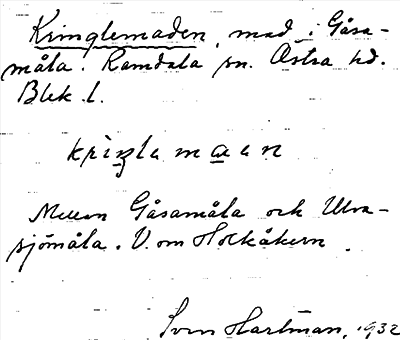 Kringlemaden, mad i Gåsa-
måla. Ramdala sn. Östra hd.
Blek. l.
kriŋləmaan
Mellan Gåsamåla och Ulva-
sjömåla. V. om Holkåkern.
Sven Hartman, 1932